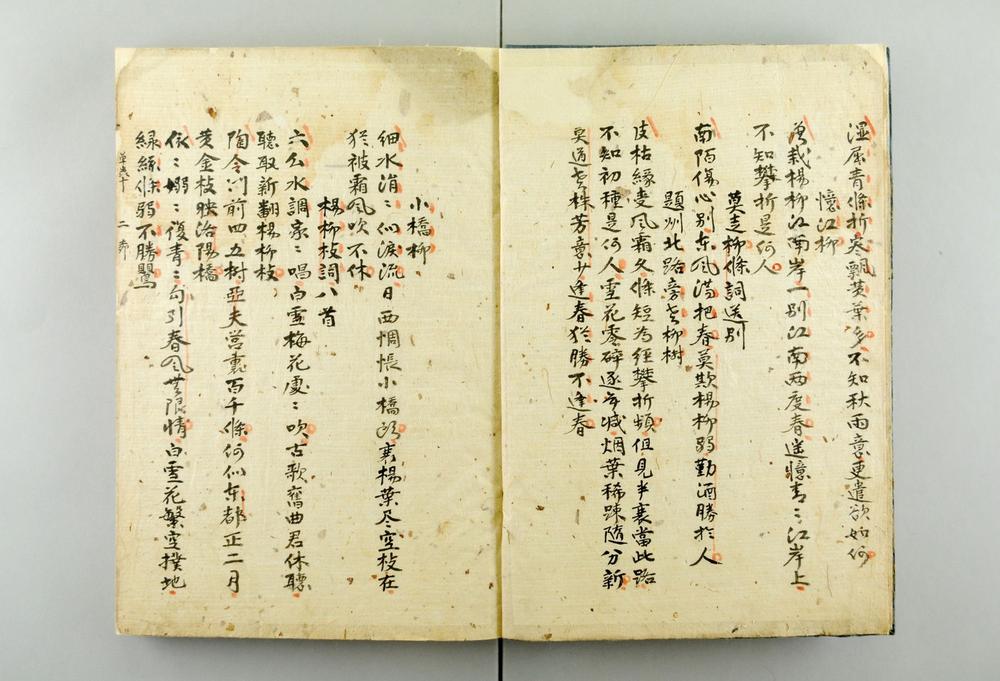 湿屈青條折寒飄黄葉多不知秋雨意更遣欲如何
憶江柳
曽栽楊柳江南岸一別江南両度春遥憶青〻江岸上
不知攀折是何人
莫走柳條詞送別
南陌傷心別東風満把春莫欺楊柳弱勧酒勝於人
題州北路旁老柳樹
皮枯縁受風霜久條短為経攀折頻但見半衰當此路
不知初種是何人雪花零砕逐年減烟葉稀疎随分新
莫道老株芳意少逢春猶勝不逢春
小橋柳
細水涓〻似淚流日西惆悵小橋頭衰楊葉尽空枝在
猶被霜風吹不休
楊柳枝詞八首
六么水調家〻唱白雪梅花處〻吹古歌舊曲君休聴
聴取新翻楊柳枝
陶令門前四五樹亞夫営裏百千條何似東都正二月
黄金枝映洛陽橋
依〻嫋〻復青〻勾引春風無限情白雪花繁空撲地
緑絲條弱不勝鸎